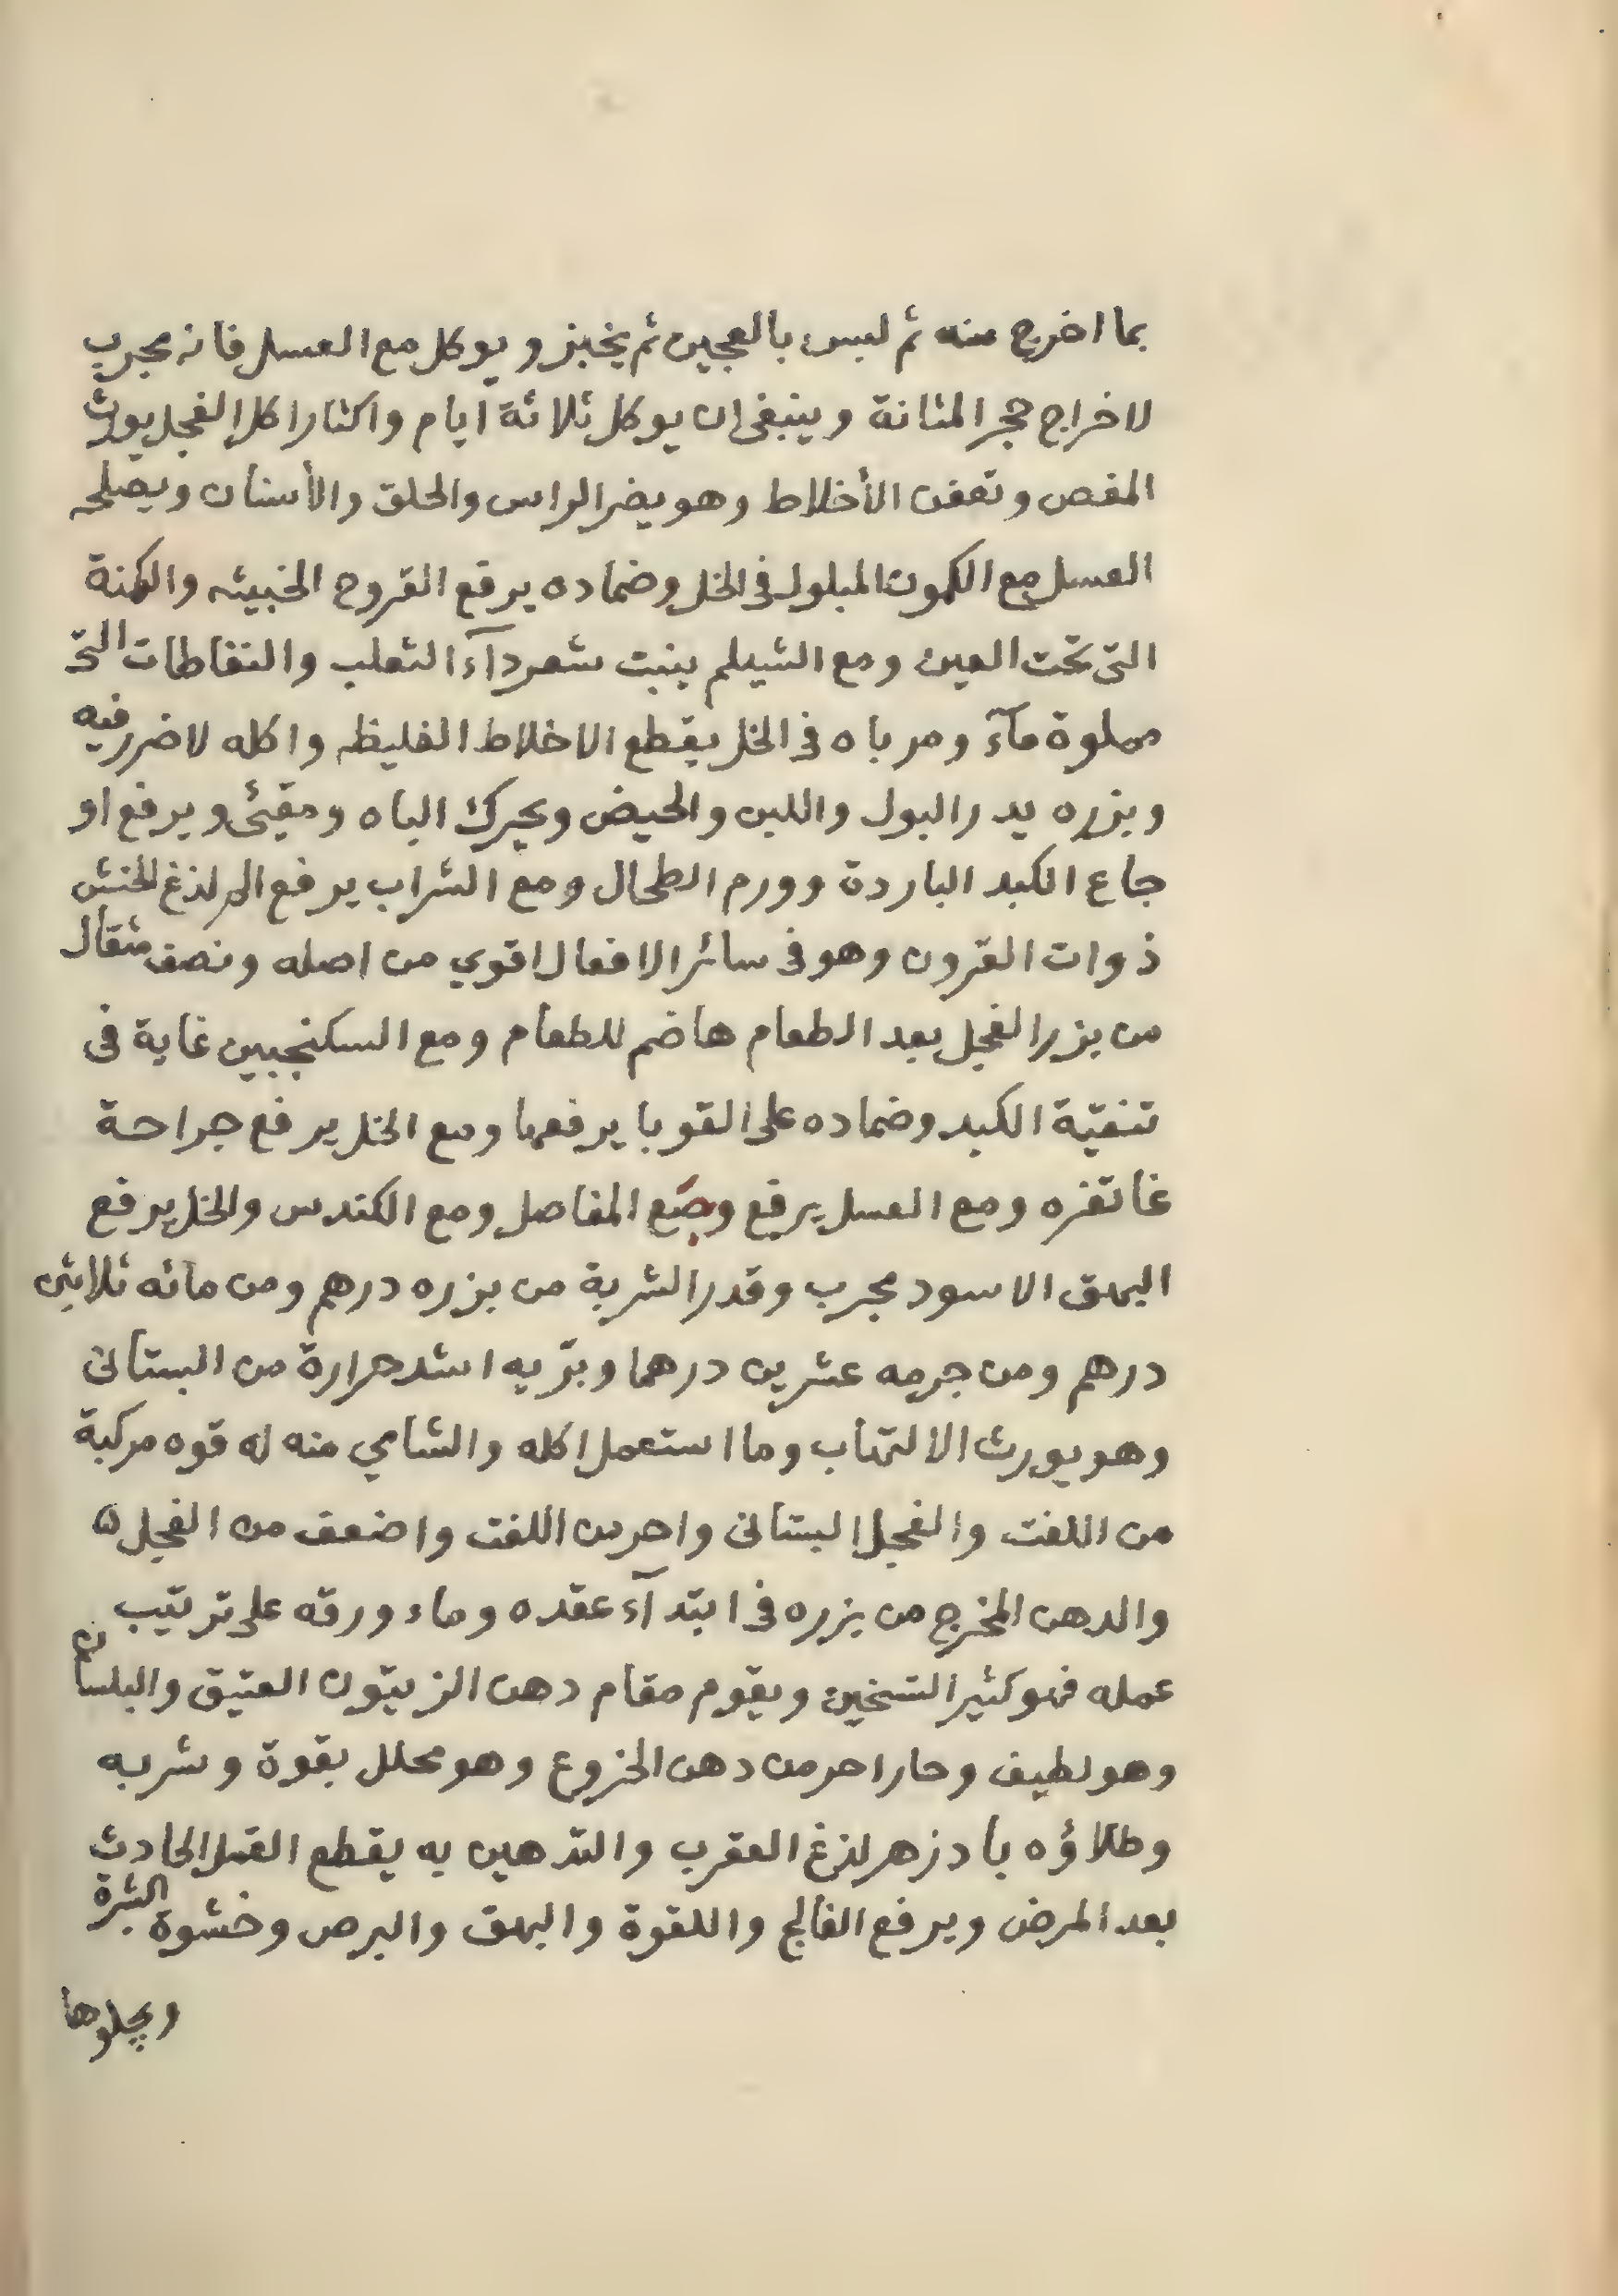 بما اخرج منه ثم لبس بالعجين ثم يخبز ويوكل مع العسل فانه مجرب
لاخراج حجر المثانة وينبغى ان يوكل ثلاثة ايام واكثار اكل الفجل يورث
المغص وتعفن الأخلاط وهو يضر الراس والحلق والأسنان ويصلحه
العسل مع الكمون المبلول فى الخل وضماده يرفع القروح الخبيثه والكمنة
التى تحت العين ومع الشيلم ينبت شعر دآء الثعلب والنفاطات التى
مملوة مآء ومرباه فى الخل يقطع الاخلاط الغليظه واكله لا ضرر فيه
وبزره يدر البول واللبن والحيض ويحرك الباه ومقيئ ويرفع او
جاع الكبد الباردة وورم الطحال ومع الشراب يرفع الم لذغ الحنش
ذوات القرون وهو فى سائر الافعال اقوي من اصله ونصف مثقال
من بزر الفجل بعد الطعام هاضم للطعام ومع السكنجبين غاية فى
تنقيّة الكبد وضماده على القوبا يرفعها ومع الخل يرفع جراحة
غانقزه ومع العسل يرفع وجع المفاصل ومع الكندس والخل يرفع
البهق الاسود مجرب وقدر الشربة من بزره درهم ومن مائه ثلاثين
درهم ومن جرمه عشرين درهما وبرّيه اشد حرارة من البستانى
وهو يورث الالتهاب وما استعمل اكله والشامي منه له قوه مركبة
من اللفت والفجل البستانى واحر من اللفت واضعف من الفجل ه
والدهن المخرج من بزره فى ابتدآء عقده وماء ورقه على ترتيب
عمله فهو كثير التسخين ويقوم مقام دهن الزيتون العتيق والبلسان
وهو لطيف وحار احر من دهن الخروع وهو محلل بقوة وشربه
وطلاؤه بادزهر لذغ العقرب والتدهين به يقطع القمل الحادث
بعد المرض ويرفع الفالج واللقوة والبهق والبرص وخشوة البشرة
ويجلوها